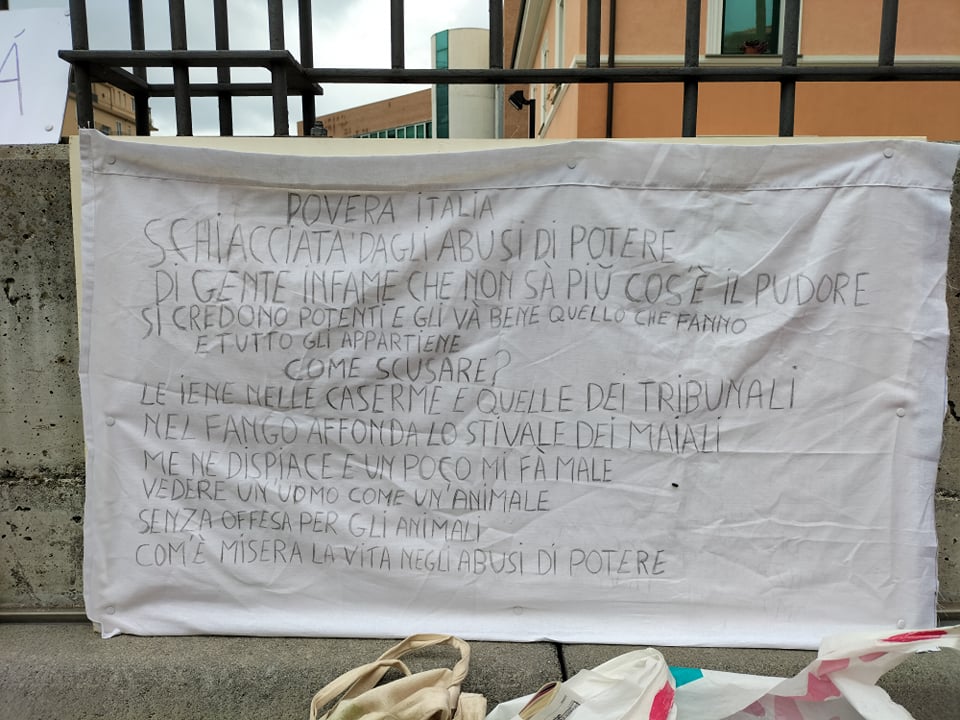 Á
POVERA ITALIA
SCHIACCIATA DAGLI ABUSI DI POTERE
DI GENTE INFAME CHE NON SÀ PIÙ COS'È IL PUDORE
SI CREDONO POTENTI E GLI VÀ BENE QUELLO CHE FANNO
E TUTTO GLI APPARTIENE
COME SCUSARE?
LE IENE NELLE CASERME E QUELLE DEI TRIBUNALI
NEL FANGO AFFONDA LO STIVALE DEI MAIALI
ME NE DISPIACE E UN POCO MI FÀ MALE
VEDERE UN'UOMO COME UN'ANIMALE
SENZA OFFESA PER GLI ANIMALI
COM'È MISERA LA VITA NEGLI ABUSI DI POTERE